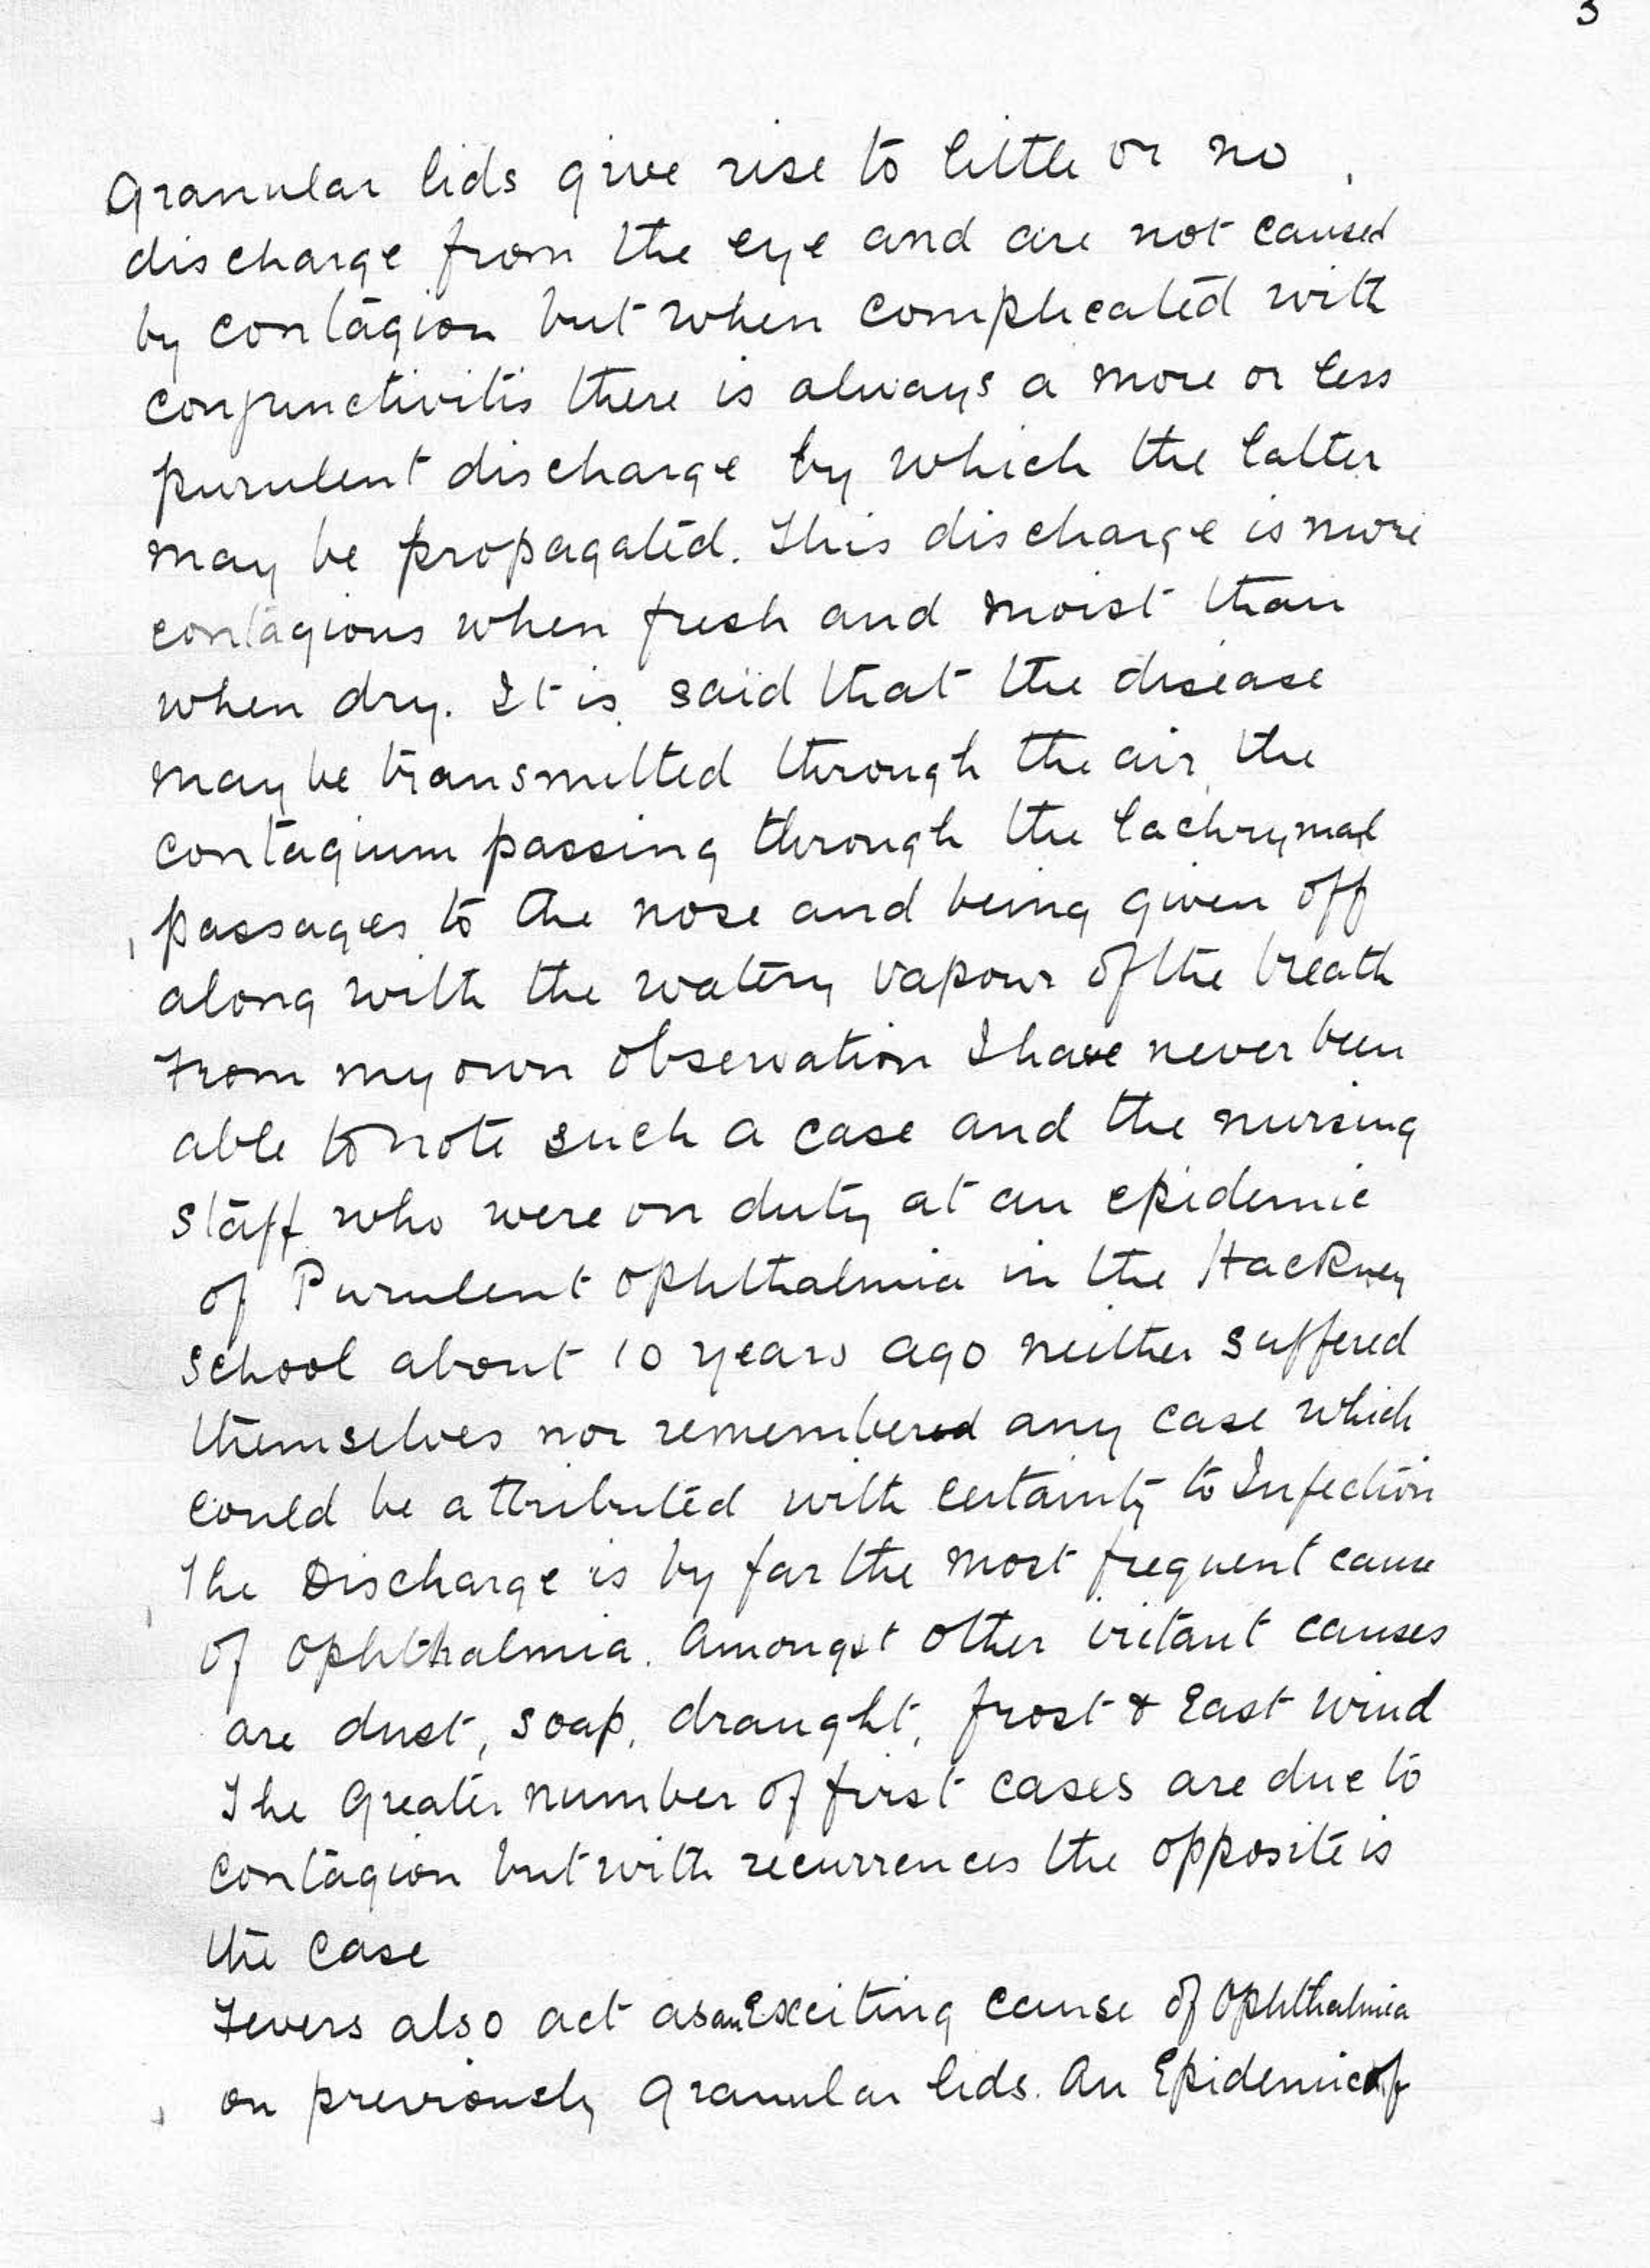 3
Granular lids give rise to little or no
discharge from the eye and are not caused
by contagion but when complicated with
conjunctivitis there is always a more or less
purulent discharge by which the latter
may be propagated. This discharge is more
contagious when fresh and moist than
when dry. It is said that the disease
may be transmitted through the air, the
contagium passing through the lachrymal
passages to the nose and being given off
along with the watery vapour of the breath
From my own observation I have never been
able to note such a case and the nursing
staff who were on duty at an epidemic
of Purulent Ophthalmia in the Hackney
School about 10 years ago neither suffered
themselves nor remembered any case which
could be attributed with certainty to Infection
The Discharge is by far the most frequent cause
of Ophthalmia. Amongst other iritant causes
are dust, soap, draught, frost & East wind
The Greater number of first cases are due to
contagion but with recurrences the opposite is
the case
Fevers also act as an Exciting cause of Ophthalmia
on previously granular lids. An Epidemic of